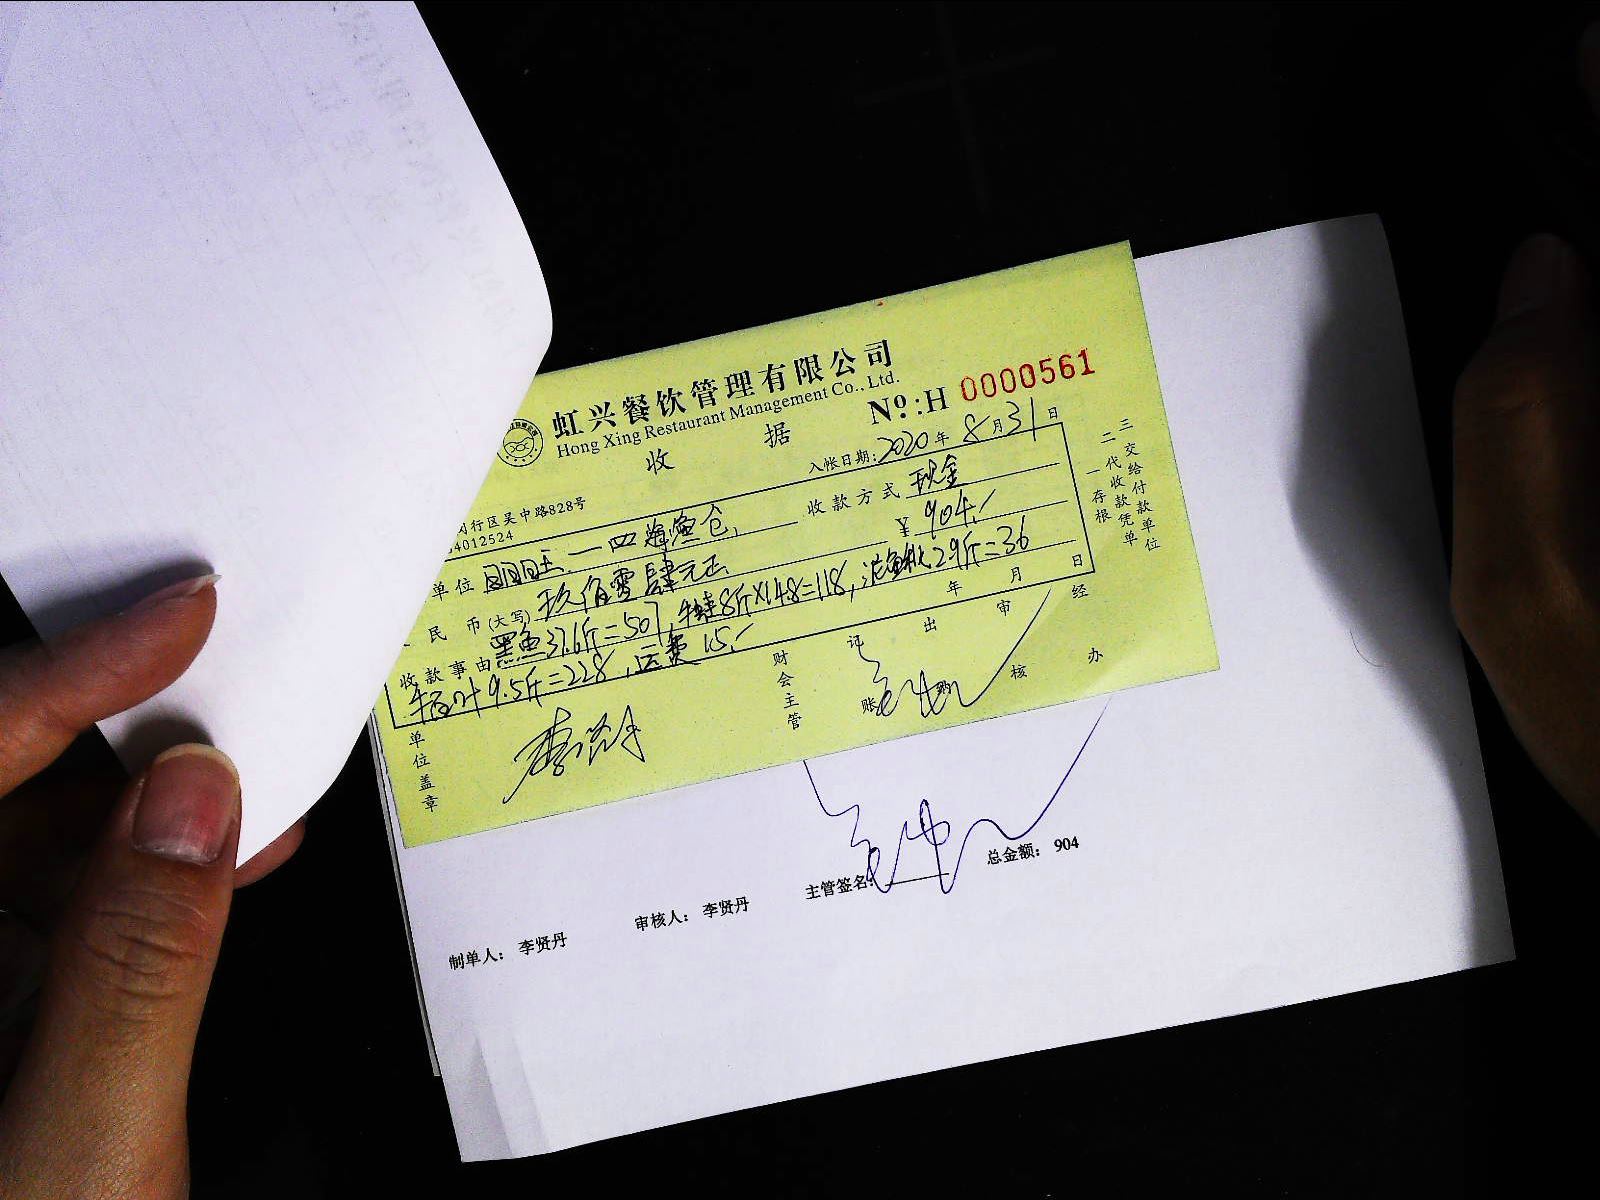 虹兴餐饮管理有限公司
Hong Xing Restaurant Management Co., Ltd.
收 据
№:H 0000561
入帐日期:2020年8月31日
闵行区吴中路828号
4012524
单位 明旺一四海渔仓 收款方式 现金
民币(大写) 玖佰零肆元正 ¥ 904./
收款事由 黑鱼37.6斤=507,特8斤×14.8=118, 29斤=36
9.5斤=228,运费15./
年 月 日
一存根
二代收款凭单
三交给付款单位
单位盖章
财会主管
记账
出纳
审核
经办
制单人: 李贤丹
审核人: 李贤丹
主管签名:
总金额: 904